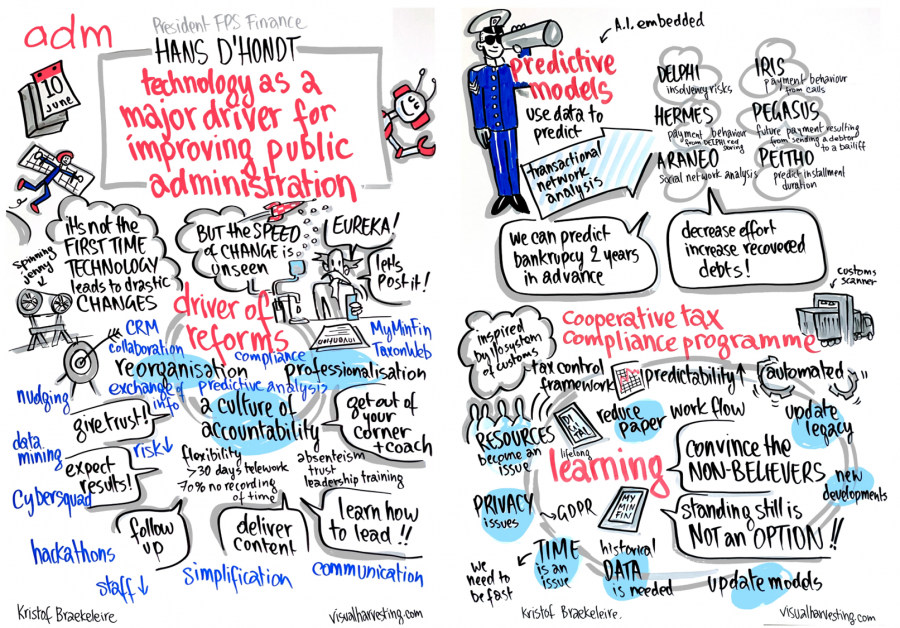 adm
President FPS Finance
HANS D'HONDT
technology as a
major driver for
improving public
administration
10
june
it's not the
FIRST TIME
TECHNOLOGY
leads to drastic
CHANGES
spinning
jenny
BUT the SPEED
of CHANGE is
unseen
EUREKA!
let's
Post it!
driver of
reforms
CRM
collaboration
compliance
MyMinFin
TaxonWeb
reorganisation
professionalisation
exchange of
info
predictive analysis
a culture of
accountability
nudging
give trust!
get out of
your
corner
+ coach
data
mining
risk↓
flexibility
>30 days telework
70% no recording
of time
absenteism
trust
leadership training
expect
results!
Cybersquad
follow
up
deliver
content
learn how
to lead!!
hackathons
staff↓
simplification
communication
Kristof Braekeleire
visualharvesting.com
A.I. embedded
predictive
models
use data to
predict
transactional
network
analysis
DELPHI
insolvency risks
IRIS
payment behaviour
from calls
HERMES
payment behaviour
from DELPHI red
scoring
PEGASUS
future payment resulting
from sending a debtor
to a bailiff
ARANEO
social network analysis
PEITHO
predict installment
duration
we can predict
bankruptcy 2 years
in advance
decrease effort
increase recovered
debts!
customs
scanner
cooperative tax
compliance programme
inspired
by filosystem
of customs
tax control
framework
predictability↑
automated
RESOURCES
become an
issue
DIGITAL
reduce
paper
work flow
update
legacy
lifelong
learning
convince the
NON-BELIEVERS
new
developments
PRIVACY
issues
GDPR
MY
MIN
FIN
standing still is
NOT an OPTION!!
we
need to
be fast
TIME
is an
issue
historical
DATA
is needed
update models
Kristof Braekeleire.
visualharvesting.com